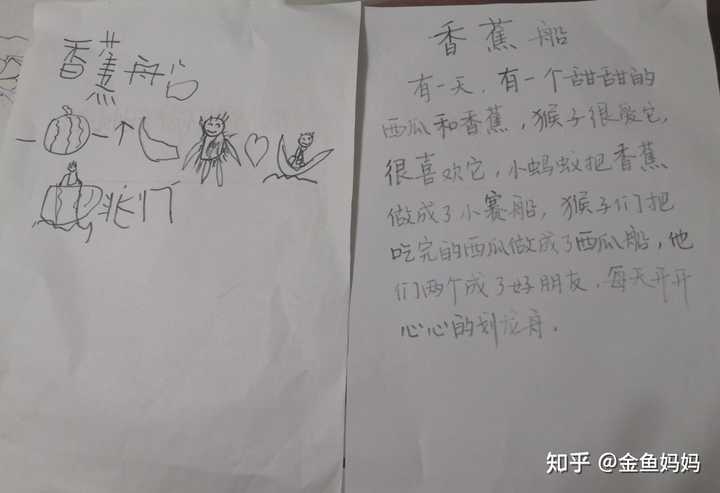 香蕉船
一 一个
们
香蕉船
有一天,有一个甜甜的
西瓜和香蕉,猴子很爱它,
很喜欢它,小蚂蚁把香蕉
做成了小赛船,猴子们把
吃完的西瓜做成了西瓜船,他
们两个成了好朋友,每天开开
心心的划龙舟.
知乎 @金鱼妈妈